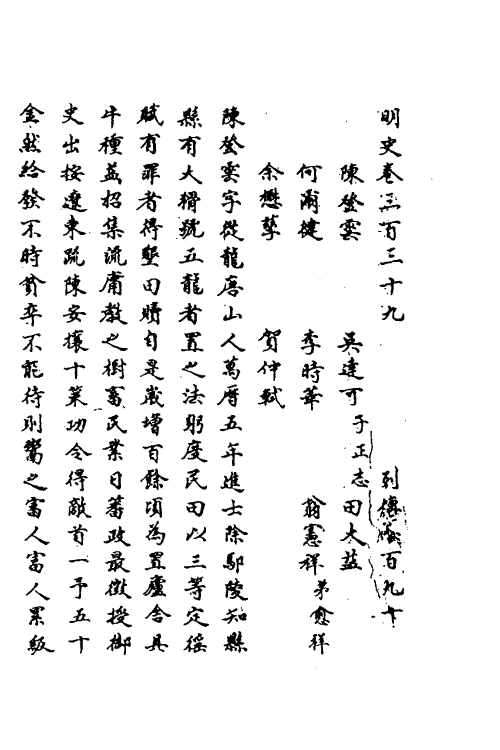 明史卷三百三十九 列傳 百九十
陳登雲 吳達可 子正志 田大益
何爾健 李時華 翁憲祥 弟愈祥
余懋孳 賀仲軾
陳登雲字從龍唐山人萬曆五年進士除鄢陵知縣
縣有大猾號五龍者置之法躬度民田以三等定徭
賦有罪者得墾田贖自是歲增百餘頃為置廬舍具
牛種益招集流庸教之樹畜民業日蕃政最徵授御
史出按遼東疏陳安攘十策功令得敵首一予五十
金然給發不時貧卒不能待則鬻之富人富人累級